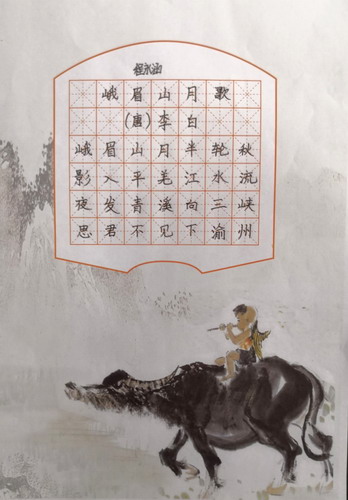 峨眉山月歌
(唐)李白
峨眉山月半轮秋
影入平羌江水流
夜发青溪向三峡
思君不见下渝州